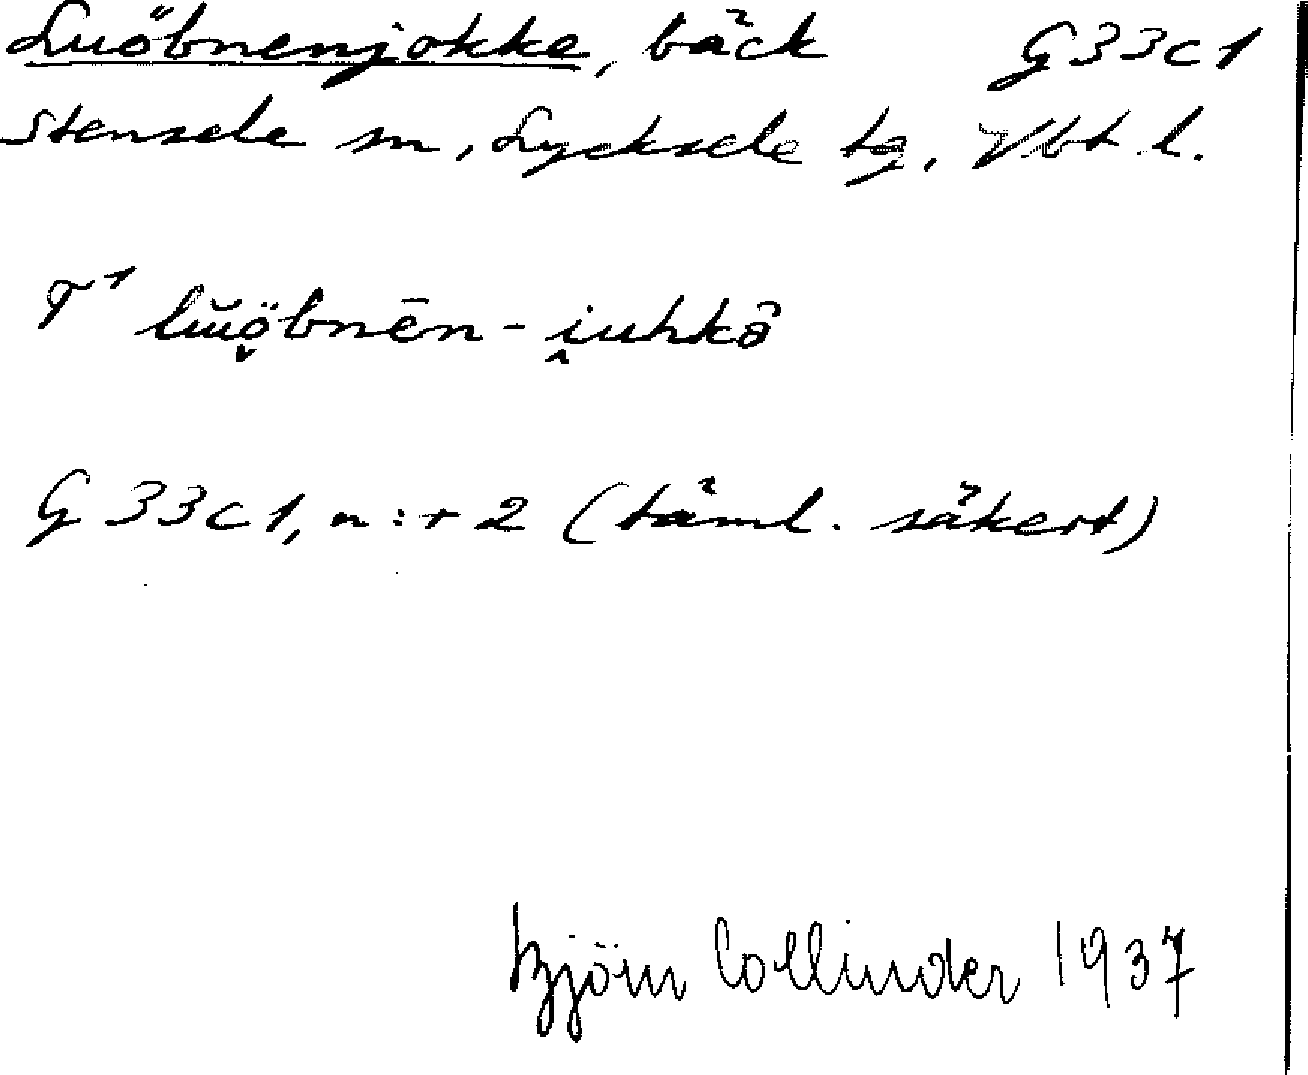 Luöbnenjokke, bäck G33c1
Stensele sn, Lycksele tg, Vbt l.
T¹ lŭö̬bnēn-i̭uhkə̑
G 33c1, n:r 2 (täml. säkert)
Björn Collinder 1937